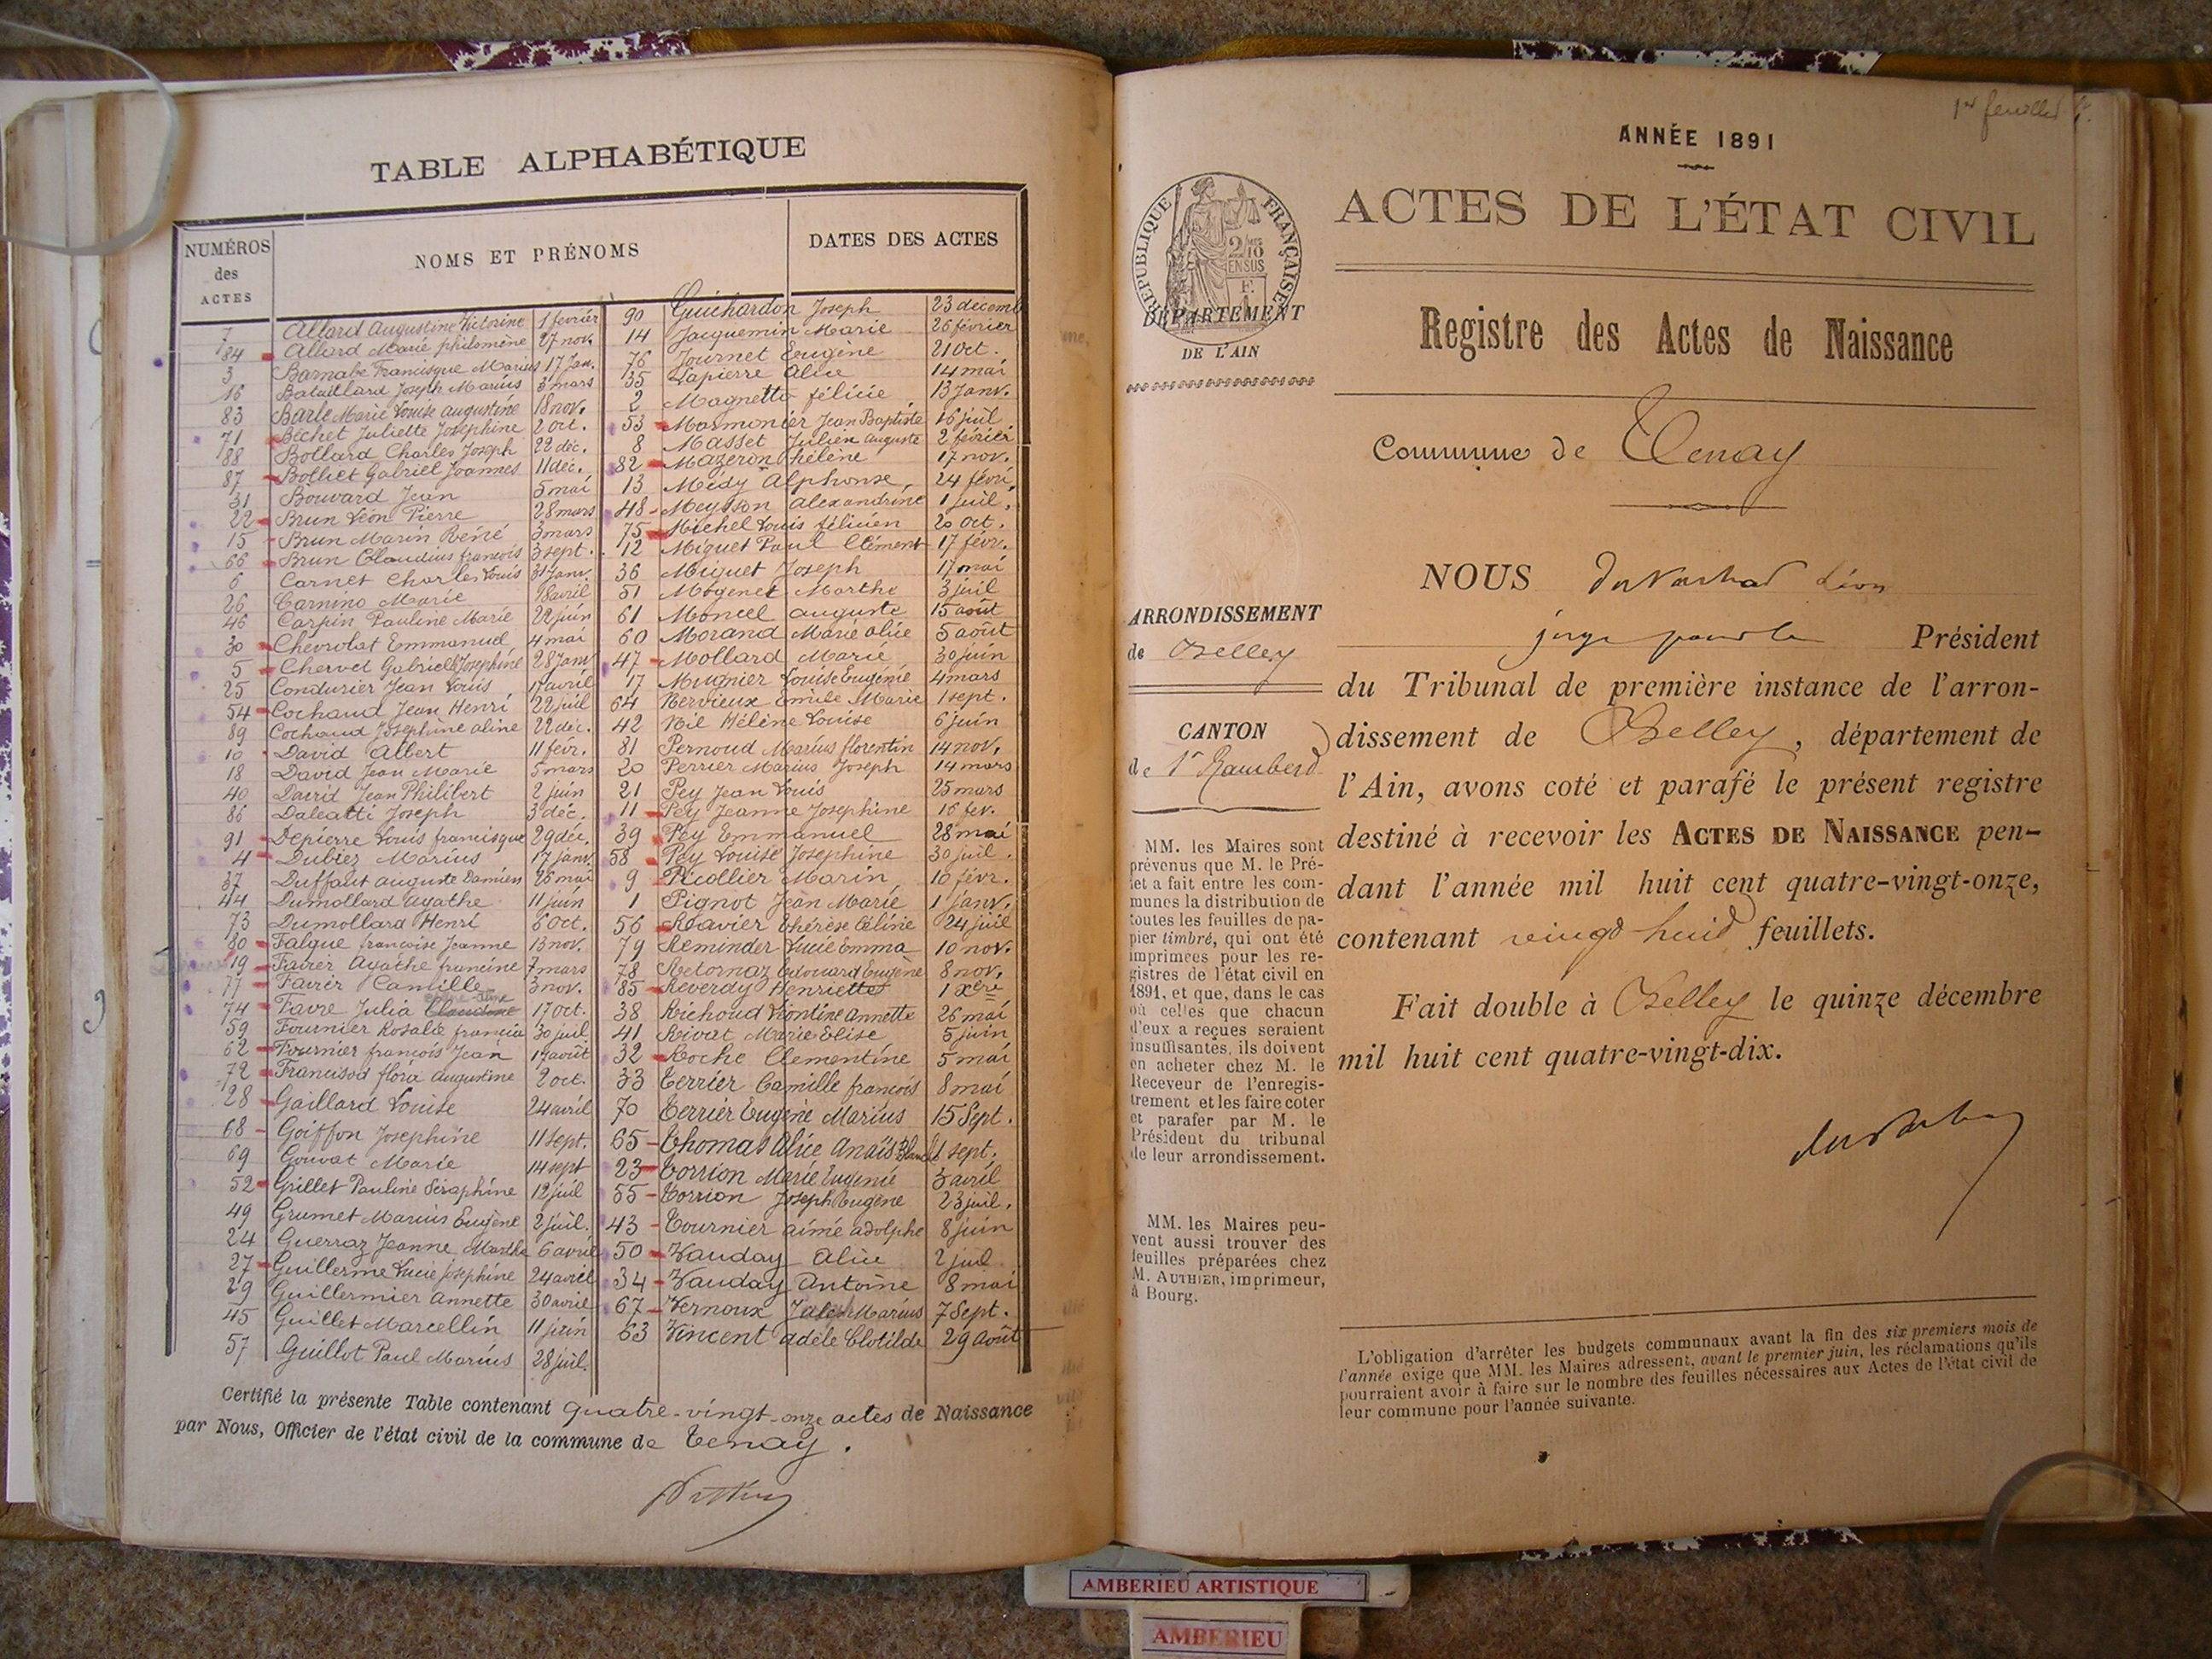 TABLE ALPHABÉTIQUE
NUMÉROS des ACTES
NOMS ET PRÉNOMS
DATES DES ACTES
7 Allard Augustine Victorine 1 février
84 Allard Marie philomène 27 nov.
3 Barnabé Francisque Marius 17 Jan.
16 Bataillard Joseph Marius 3 mars
83 Barle Marie Louise augustine 18 nov.
71 Bechet Juliette Joséphine 2 oct.
88 Bollard Charles Joseph 22 déc.
87 Bolliet Gabriel Joannes 11 déc.
31 Bouvard Jean 5 mai
22 Brun Léon Pierre 28 mars
15 Brun Marin Réné 3 mars
66 Brun Claudius françois 3 sept.
6 Carnet Charles Louis 31 Janv.
26 Carnino Marie 18 avril
46 Carpin Pauline Marie 22 juin
30 Chevrolat Emmanuel 4 mai
5 Chervet Gabrielle Joséphine 28 Janv
25 Condurier Jean Louis 17 avril
54 Cochaud Jean Henri 22 juil
89 Cochaud Joséphine aline 22 déc.
10 David Albert 11 févr.
18 David Jean Marie 5 mars
40 David Jean Philibert 2 juin
86 Daleatti Joseph 3 déc.
91 Depierre Louis francisque 29 déc.
4 Dubiez Marius 17 janv.
37 Duffaut auguste Damien 25 mai
44 Dumollard Agathe 11 juin
73 Dumollard Henri 6 Oct.
80 Falque françoise Jeanne 13 nov.
19 Favier Agathe francine 7 mars
77 Favier Camille 3 nov.
74 Favre Julia 17 oct.
59 Fournier Rosalie francia 30 juil
62 Fournier françois Jean 17 août
72 Francisod flora augustine 2 oct.
28 Gaillard Louise 24 avril
68 Goiffon Joséphine 11 sept.
69 Gouvat Marie 14 sept
52 Grillet Pauline Séraphine 12 juil
49 Grumet Marius Eugène 2 juil.
24 Guerraz Jeanne Marthe 6 avril
27 Guillerme Lucie Joséphine 24 avril
29 Guillermier Annette 30 avril
45 Guillet Marcellin 11 juin
57 Guillot Paul Marius 28 juil.
90 Guichardon Joseph 23 décemb
14 Jacquemin Marie 26 février
76 Journet Eugène 21 Oct.
35 Lapierre Alice 14 mai
2 Magnetto félicie 13 Janv.
53 Marmonier Jean Baptiste 16 juil
8 Masset Julien Auguste 2 février
82 Mazeron hélène 17 nov.
13 Médy Alphonse 24 févr.
48 Meysson Alexandrine 1 juil.
75 Michel Louis félicien 20 oct.
12 Miguet Paul Clément 17 févr.
36 Miguet Joseph 17 mai
51 Mogenet Marthe 3 juil
61 Moncel auguste 15 août
60 Morand Marie Alice 5 août
47 Mollard Marie 30 juin
17 Mugnier Louise Eugénie 4 mars
64 Nervieux Emile Marie 1 sept.
42 Nil Hélène Louise 6 juin
81 Pernoud Marius florentin 14 nov.
20 Perrier Marius Joseph 14 mars
21 Pey Jean Louis 25 mars
11 Pey Jeanne Joséphine 16 fev.
39 Pey Emmanuel 28 mai
58 Pey Louise Josephine 30 juil.
9 Picollier Marin 10 févr.
1 Pignot Jean Marie 1 Janv.
56 Ravier thérèse Céline 24 juil
79 Reminder Lucie Emma 10 nov.
78 Retornaz Edouard Eugène 8 nov.
85 Reverdy Henriette 1 Xbre
38 Richoud Léontine Annette 26 mai
41 Rivat Marie Elise 5 juin
32 Roche Clementine 5 mai
33 Terrier Camille françois 8 mai
70 Terrier Eugène Marius 15 Sept.
65 Thomas Alice Anaïs Blanche 1 sept.
23 Torrion Marie Eugénie 3 avril
55 Torrion Joseph Eugène 23 juil.
43 Tournier aimé adolphe 8 juin
50 Vauday Alice 2 juil
34 Vauday Antoine 8 mai
67 Vernoux Jules Marius 7 Sept.
63 Vincent adèle Clotilde 29 Août
Certifié la présente Table contenant quatre-vingt-onze actes de Naissance
par Nous, Officier de l'état civil de la commune de Tenay.
1er feuillet
ANNÉE 1891
ACTES DE L'ÉTAT CIVIL
RÉPUBLIQUE FRANÇAISE
2/10 EN SUS
DÉPARTEMENT
DE L'AIN
Registre des Actes de Naissance
Commune de Tenay
ARRONDISSEMENT
de Belley
CANTON
de St Rambert
MM. les Maires sont
prévenus que M. le Pré-
fet a fait entre les com-
munes la distribution de
toutes les feuilles de pa-
pier timbré, qui ont été
imprimées pour les re-
gistres de l'état civil en
1891, et que, dans le cas
où celles que chacun
d'eux a reçues seraient
insuffisantes, ils doivent
en acheter chez M. le
Receveur de l'enregis-
trement et les faire coter
et parafer par M. le
Président du tribunal
de leur arrondissement.
MM. les Maires peu-
vent aussi trouver des
feuilles préparées chez
M. AUTHIER, imprimeur,
à Bourg.
NOUS Léon
juge pour le Président
du Tribunal de première instance de l'arron-
dissement de Belley, département de
l'Ain, avons coté et parafé le présent registre
destiné à recevoir les ACTES DE NAISSANCE pen-
dant l'année mil huit cent quatre-vingt-onze,
contenant vingt huit feuillets.
Fait double à Belley le quinze décembre
mil huit cent quatre-vingt-dix.
L'obligation d'arrêter les budgets communaux avant la fin des six premiers mois de
l'année exige que MM. les Maires adressent, avant le premier juin, les réclamations qu'ils
pourraient avoir à faire sur le nombre des feuilles nécessaires aux Actes de l'état civil de
leur commune pour l'année suivante.
AMBERIEU ARTISTIQUE
AMBERIEU